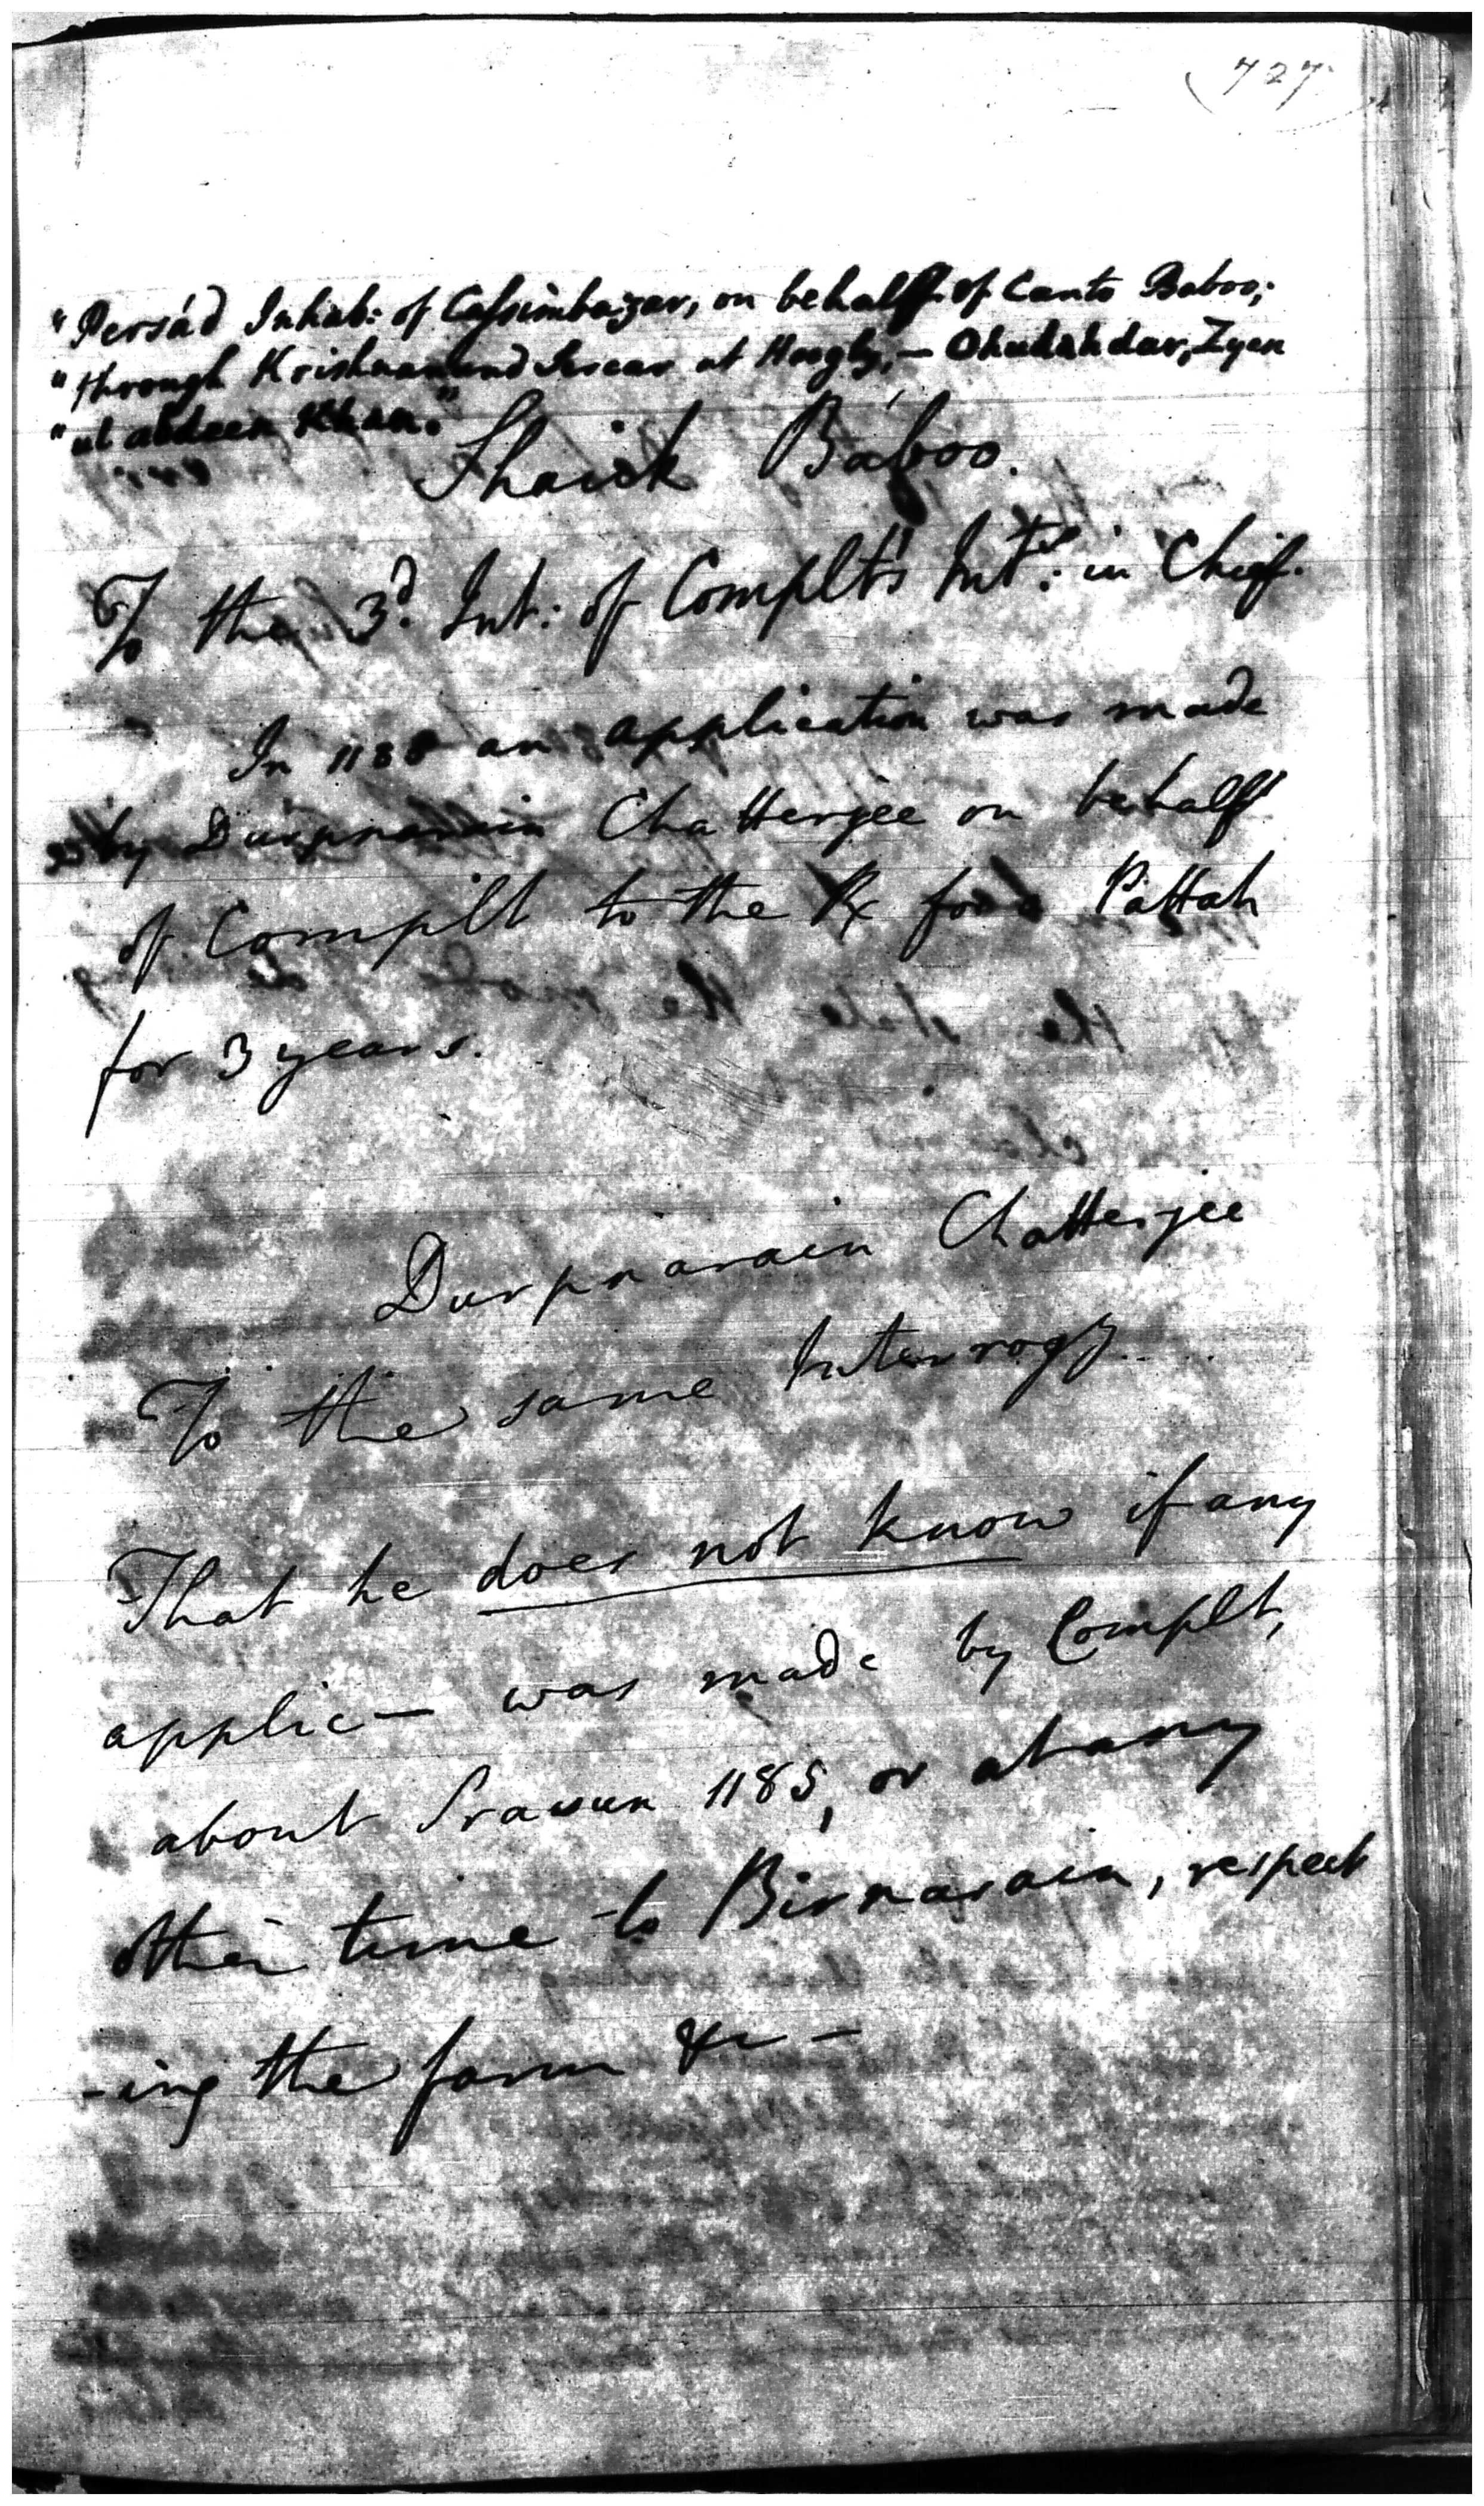 (727)
"Persád Inhab: of Cassimbazar, on behalf of Canto Baboo,
"through Krishnanund Sircar at Hoogly, — Ohudahdar, Zyen
"ul abdeen Khan."
Shaick Báboo.
To the 3d. Int: of Complts Ints. in Chief.
In 1188 an application was made
by Durpnarain Chatterjee on behalf
of Complt to the for a Pattah
for 3 years.
Durpnarain Chatterjee
To the same Interrogy.
That he does not know if any
applic— was made by Complt,
about Srawun 1185, or at any
other time to Birnarain, respect
-ing the farm &c —